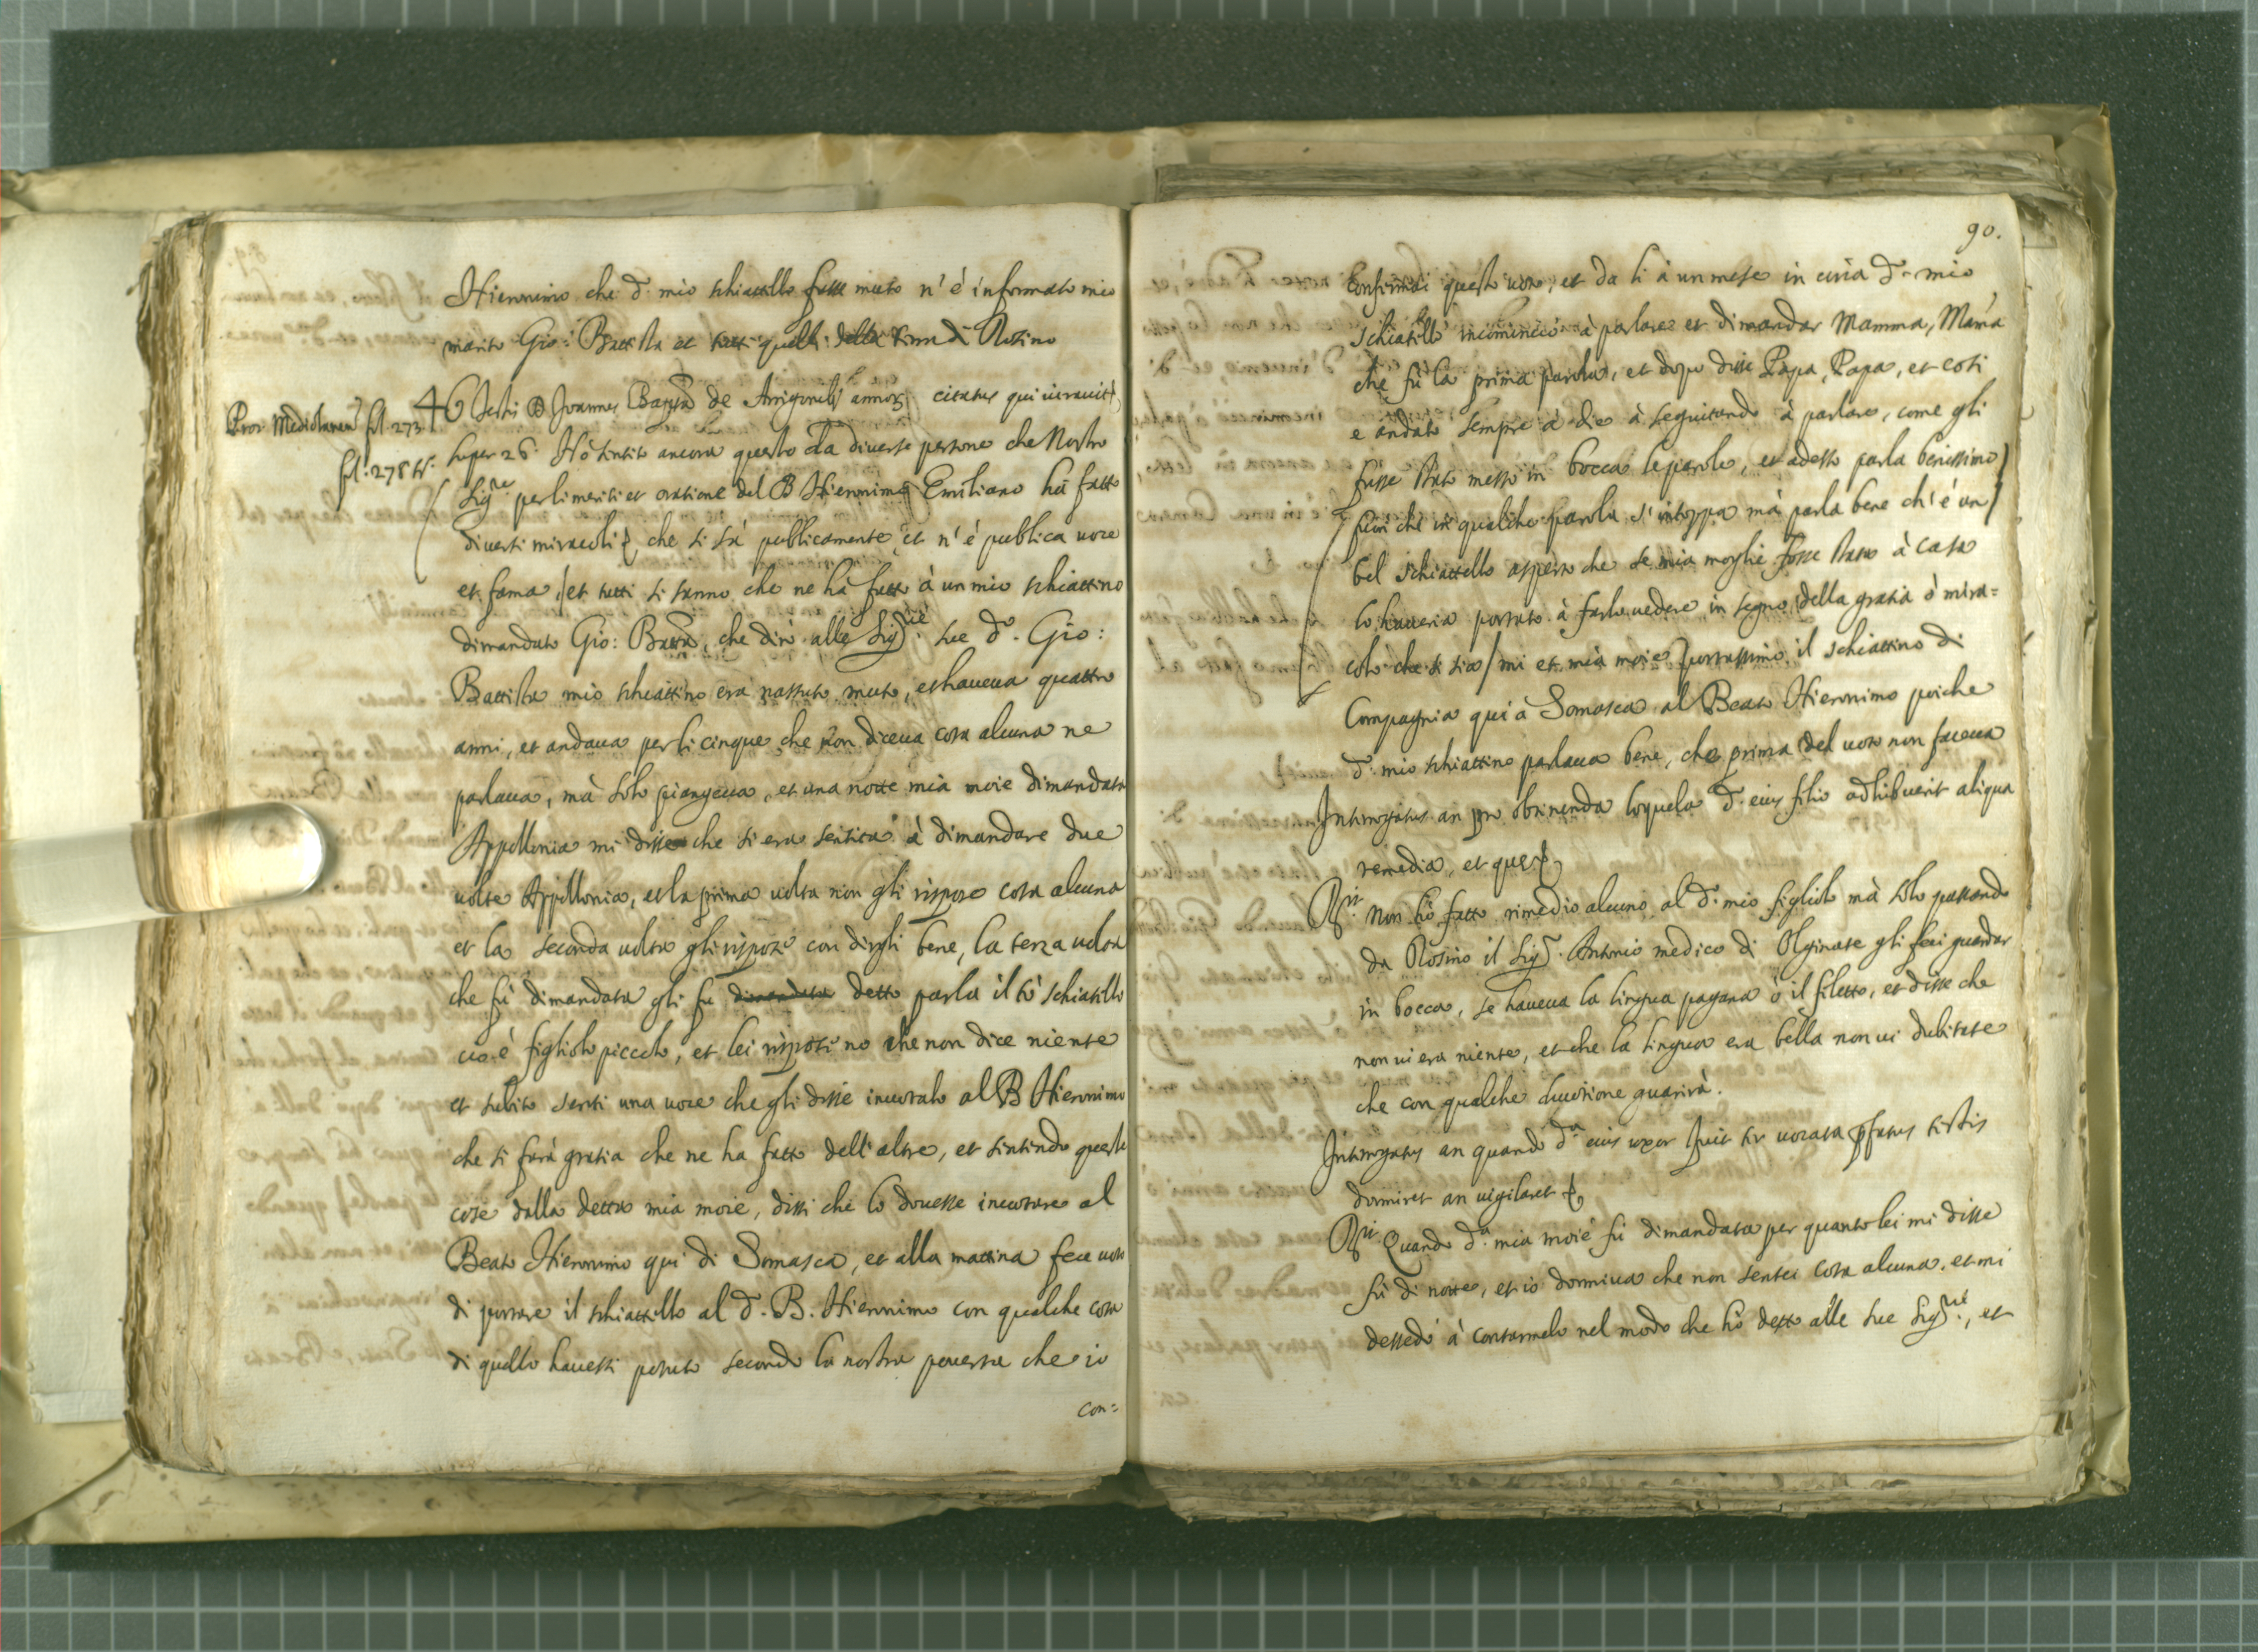 Hieronimo che d.º mio schiattello fusse muto n'è informato mio
marito Gio: Battista et tutti quelli della Terra di Rosino
Proc. Mediolanen. fol. 273
fol. 278 tº.
46 Testis D Joannes Bapta de Arrigonib. citatus qui iuravit
super 26. Hò sentito ancora questo da diverse persone che Nostro
Sigre per li meriti et oratione del B Hieronimo Emiliano hà fatto
diversi miracoli che si sà publicamente et n'è publica voce
et fama, et tutti si sanno che ne hà fatto à un mio schiattino
dimandato Gio: Batta, che dirò alle Sigrie sue d.º Gio:
Battista mio schiattino era nassuto muto, et haveva quattro
anni, et andava per li cinque che non diceva cosa alcuna ne
parlava, mà solo piangeva, et una notte mia moie dimandata
Appollonia mi disse che si era sentita à dimandare due
volte Appollonia, et la prima volta non gli rispose cosa alcuna
et la seconda volta gli rispose con dirgli bene, la terza volta
che fù dimandata gli fu dimandata detto parla il tò schiatello
cio è figliolo piccolo, et lei risposi no che non dice niente
et subito senti una voce che gli disse invotalo al B Hieronimo
che ti farà gratia che ne ha fatto dell'altre, et sintindo queste
cose dalla detta mia moie, dissi che lo dovesse invotare al
Beato Hieronimo qui di Somasca, et alla mattina fece voto
di portare il schiattello al d.º B. Hieronimo con qualche cosa
di quello havessi potuto secondo la nostra poverta che io
con=
90.
confirmai questo voto, et da li à un mese in circa d.º mio
schiatello incominciò à parlare et dimandar Mamma, Mama
che fù la prima parola, et dopo disse Papa, Papa, et cosi
e andato sempre à die à seguitando à parlare, come gli
fusse stato messo in bocca le parole, et adesso parla benissimo
fuori che in qualche parola s'intoppa mà parla bene ch'è un
bel schiattello asperto che se mia moglie fosse stata à casa
lo haveria portato à farlo vedere in segno della gratia ò mira=
colo che si sia mi et mia moie portassimo il schiattino di
Compagnia qui à Somasca al Beato Hieronimo poiche
d.º mio schiattino parlava bene, che prima del voto non faceva
Interrogatus an pro obtinenda loquela d.º eius filio adhibuerit aliqua
remedia, et que
Rit. Non hò fatto rimedio alcuno al d.º mio figliolo mà solo passando
da Rosino il Sigr. Antonio medico di Olginate gli feci guardar
in bocca, se haveva la lingua pagana ò il filetto, et disse che
non vi era niente, et che la lingua era bella non vi dubitate
che con qualche divotione guarirà.
Interrogatus an quando dª eius uxor fuit ter vocata pfatus testis
dormiret an vigilaret
Rit. Quando dª. mia moie fù dimandata per quanto lei mi disse
fù di notte, et io dormiva che non sentei cosa alcuna. et mi
dessedò à contarmelo nel modo che hò detto alle sue Sigrie, et